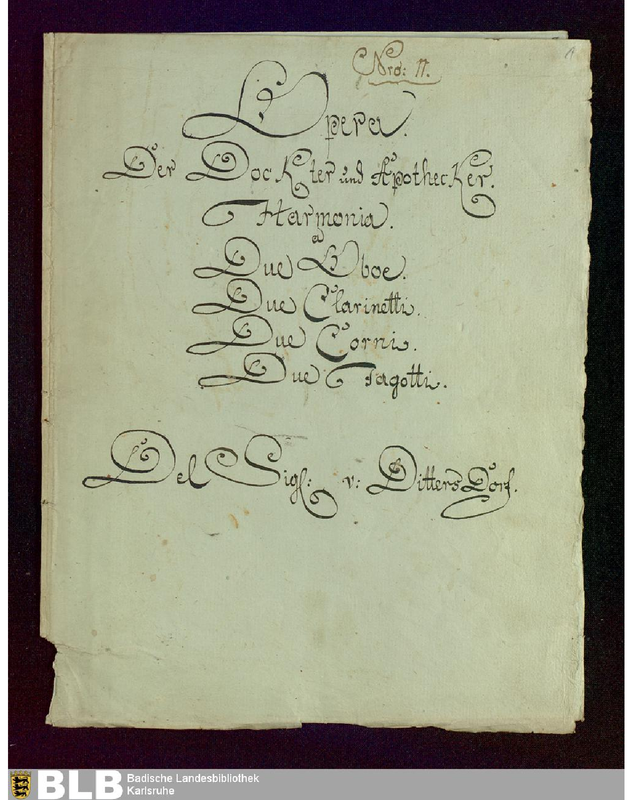 Nro: 17.
Opera.
Der Dockter und Apothecker.
Harmonia.
a
Due Oboe.
Due Clarinetti.
Due Corni.
Due Fagotti.
Del Sigl: v: DittersDorf.
BLB Badische Landesbibliothek
Karlsruhe